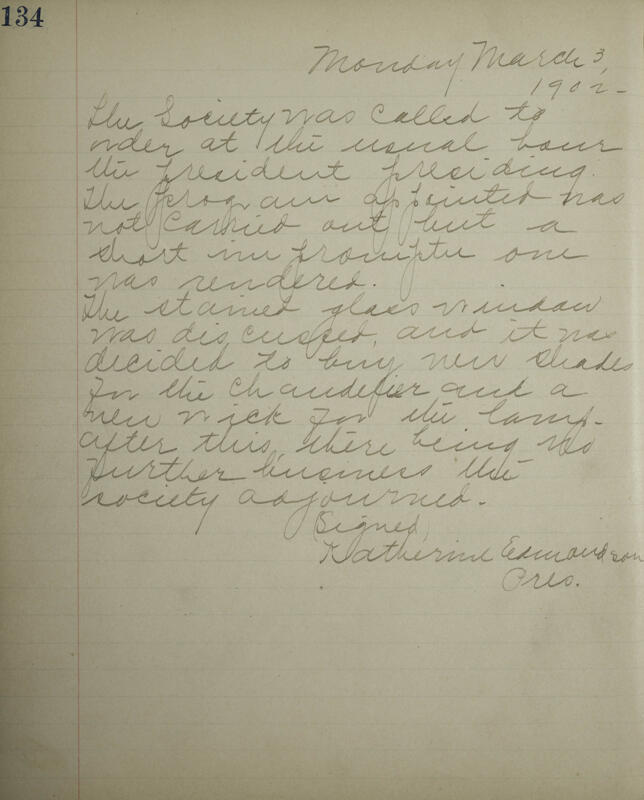 134
Monday March 3,
1902-
The Society was called to
order at the usual hour
the president presiding.
The program appointed was
not carried out but a
short impromptu one
was rendered.
The stained glass window
was discussed, and it was
decided to buy new shades
for the chandelier and a
new wick for the lamp.
after this, there being no
further business the
society adjourned.
Signed,
Katherine Edmondson
Pres.